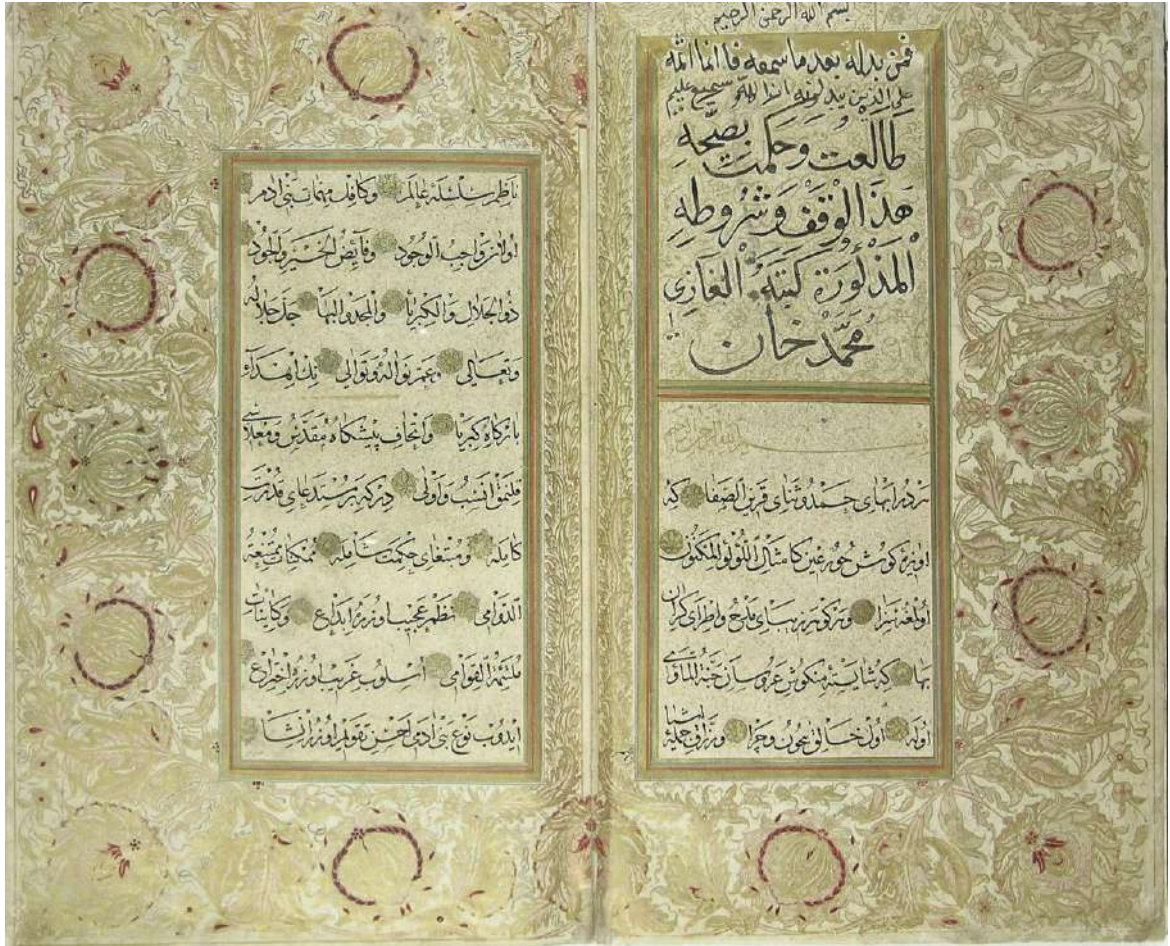 بسم الله الرحمن الرحيم
فمن بدله بعد ما سمعه فانما اثمه
على الذين يبدلونه ان الله سميع عليم
طالعت وحكمت بصحة
هذا الوقف وشروطه
المذكورة كتبه الغازى
محمد خان
درر ابهاى حمد وثناى قرين الصفا كه
اويزۀ كوش حور عين كامثال اللؤلؤ المكنون
اولغه سزا مدح واطراى كران
بها كه شايستۀ منكوش عروسان جنة المأوى
اوله اول خالق بيچون وچرا
ناظم سلسلۀ عالم وكافل مهمات بنى ادم
اولان واجب الوجود وفائض الخير والجود
ذو الجلال والكبرياء والمجد والبهاء جل جلاله
وتعالى وعم نواله وتوالى اهداء
باركاه كبريا واتحاف پيشكاه مقدس ومعلاسى
قلنمق انسب واولى دركه برمستدعاى قدرت
كامله ومقتضاى حكمت شامله ممكنات
الدوامى نظم عجيب اوزره ابداع وكاينات
القوامى اسلوب غريب اوزره اختراع
ايدوب نوع بنى ادمى احسن تقويم اوزره انشا